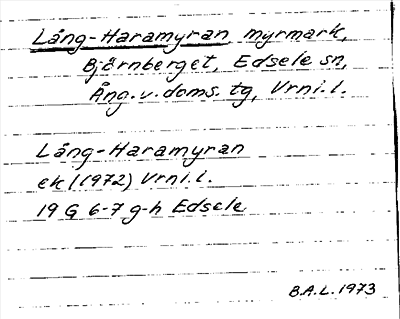 Lång-Haramyran myrmark,
Björnberget, Edsele sn,
Ång.v.doms. tg, Vrnl.l.
Lång-Haramyran
ek l (1972) Vrnl.l.
19 G 6-7 g-h Edsele
B.A.L. 1973